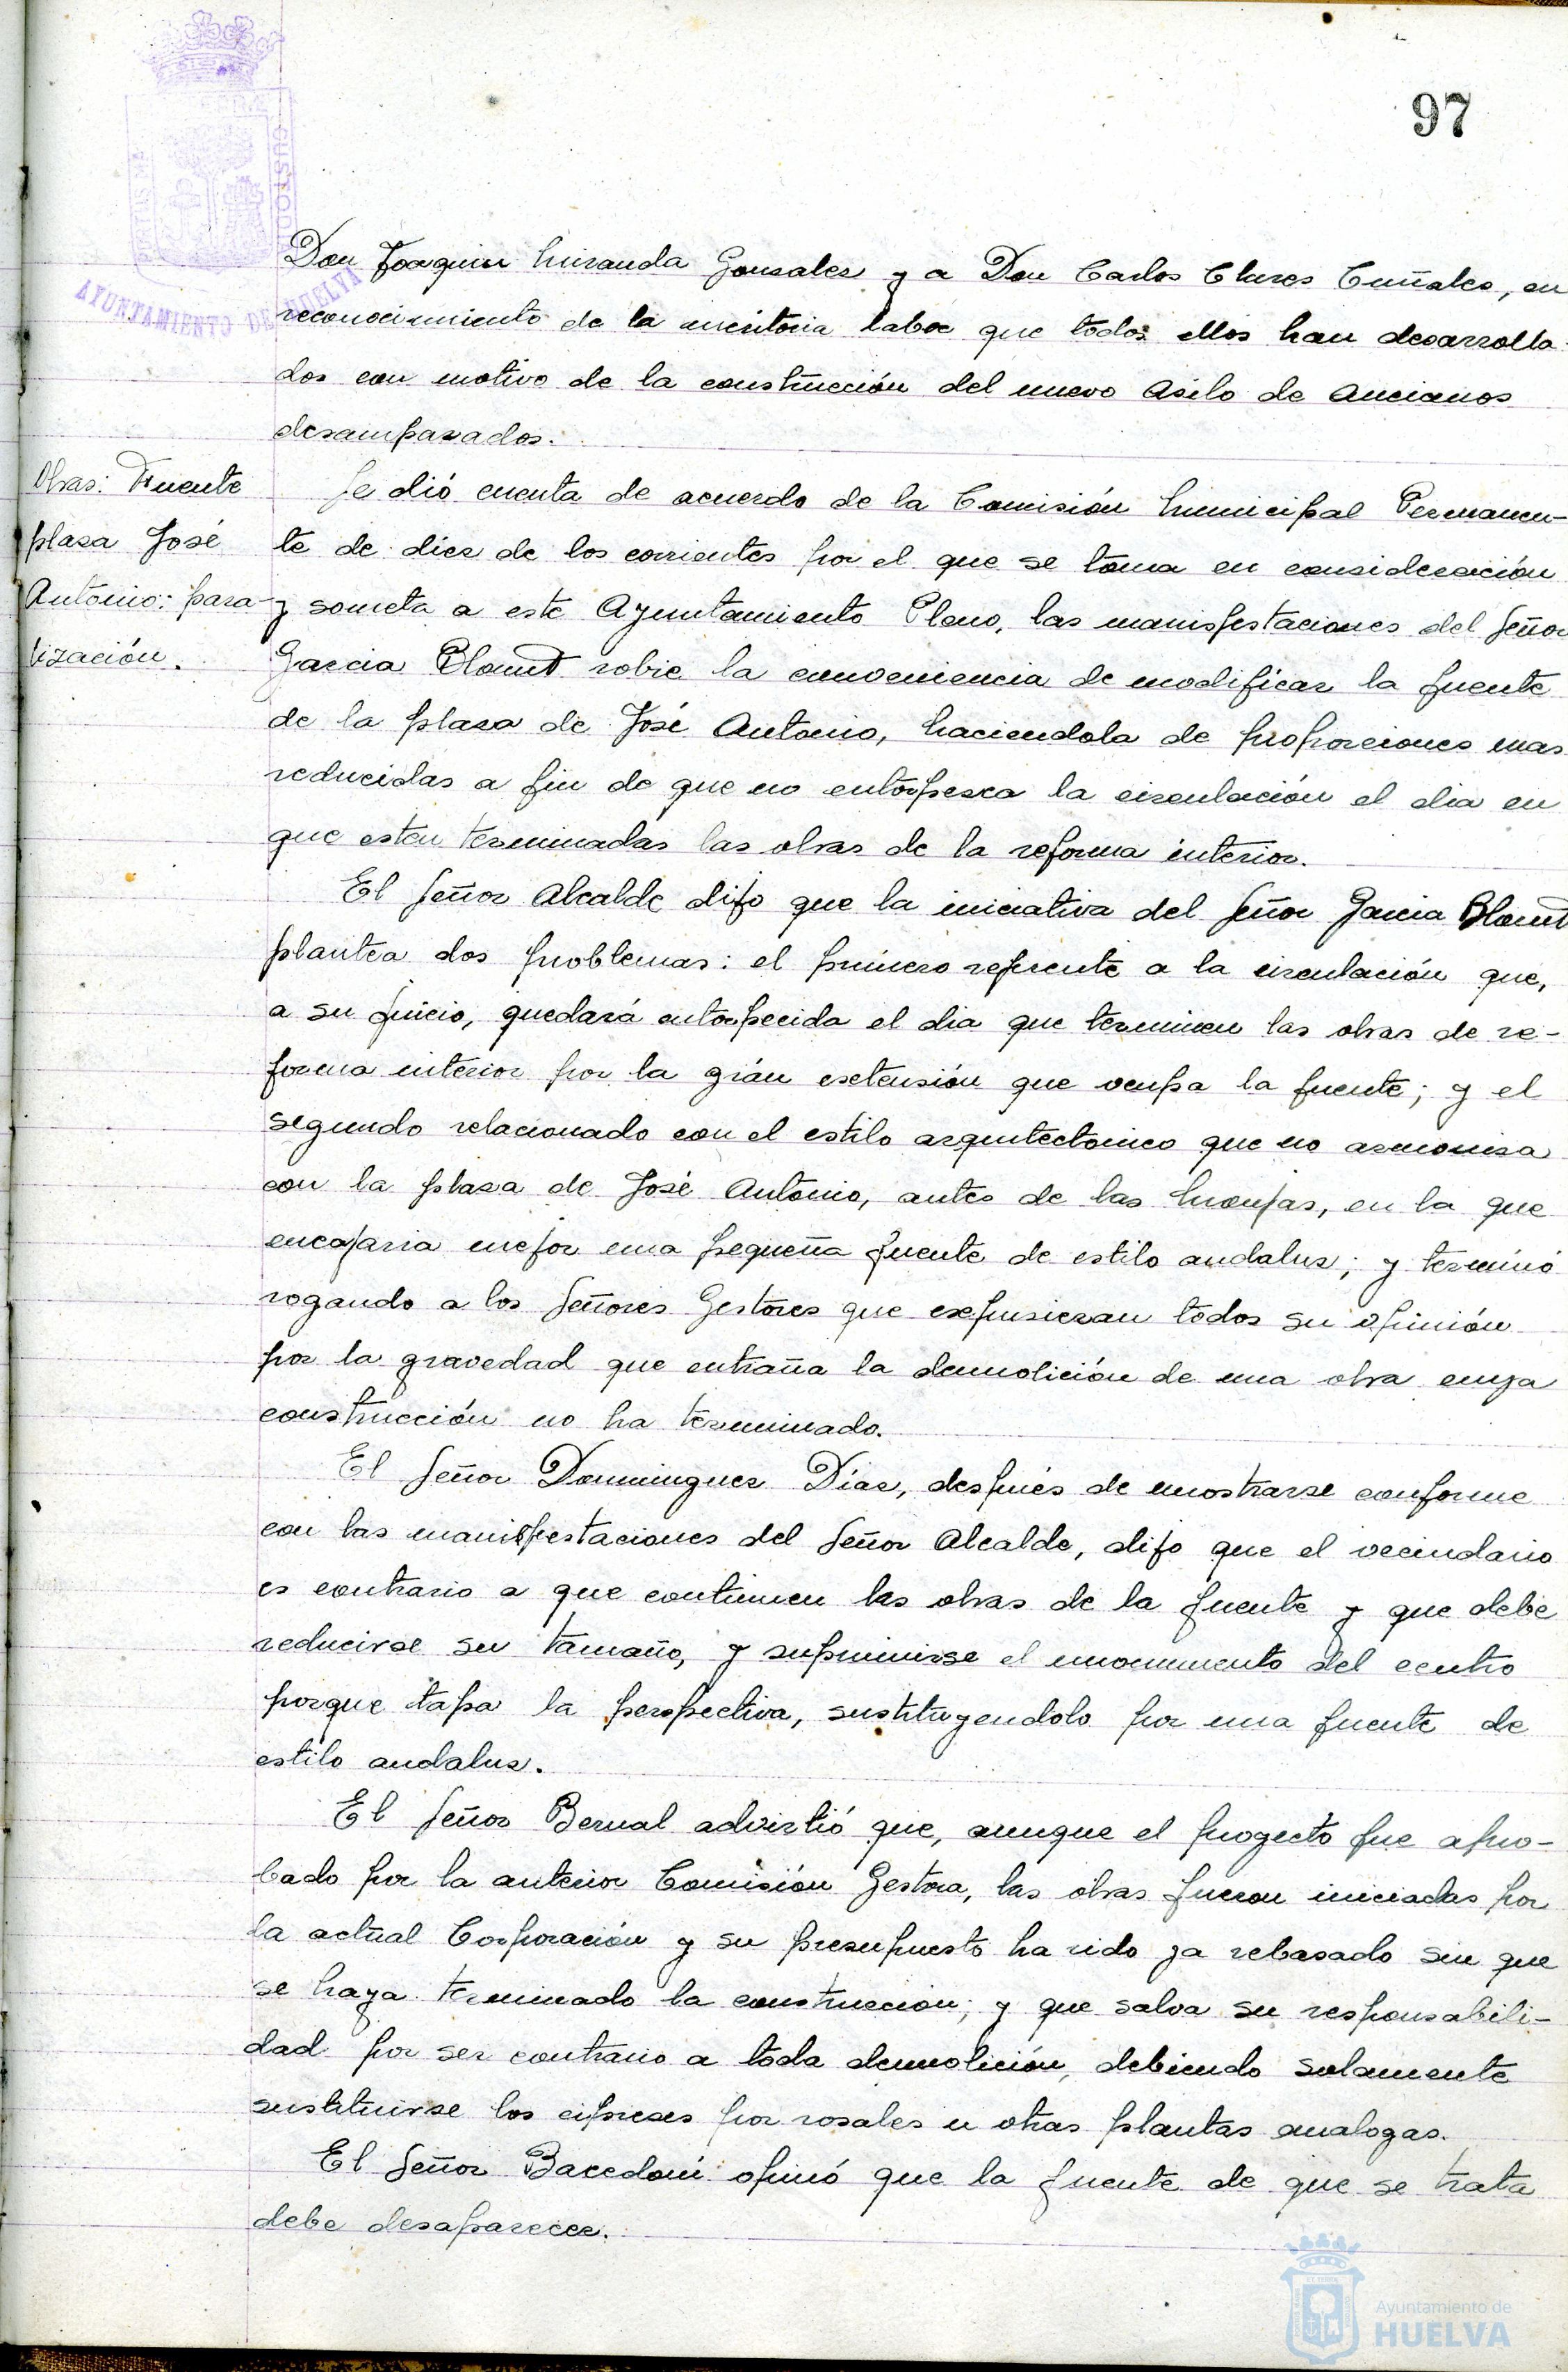 97
AYUNTAMIENTO DE HUELVA
Don Joaquin Miranda Gonzalez y a Don Carlos Clures Cuñales, en
reconocimiento de la meritoria labor que todos ellos han desarrolla-
dos con motivo de la construcción del nuevo Asilo de Ancianos
desamparados.
Obras: Fuente
plaza José
Antonio: para-
lización.
Se dió cuenta de acuerdo de la Comisión Municipal Permanen-
te de diez de los corrientes por el que se toma en consideración
y someta a este Ayuntamiento Pleno, las manisfestaciones del Señor
Garcia Blount sobre la conveniencia de modificar la fuente
de la plaza de José Antonio, haciendola de proporciones mas
reducidas a fin de que no entorpezca la circulación el dia en
que esten terminadas las obras de la reforma interior.
El Señor Alcalde dijo que la iniciativa del Señor Garcia Blount
plantea dos problemas: el primero referente a la circulación que,
a su juicio, quedará entorpecida el dia que terminen las obras de re-
forma interior por la grán extensión que ocupa la fuente; y el
segundo relacionado con el estilo arquitectonico que no armoniza
con la plaza de José Antonio, antes de las Monjas, en la que
encajaria mejor una pequeña fuente de estilo andaluz; y terminó
rogando a los Señores Gestores que expusieran todos su opinión
por la gravedad que entraña la demolición de una obra cuya
construcción no ha terminado.
El Señor Dominguez Díaz, después de mostrarse conforme
con las manisfestaciones del Señor Alcalde, dijo que el vecindario
es contrario a que continuen las obras de la fuente y que debe
reducirse su tamaño, y suprimirse el monumento del centro
porque tapa la perspectiva, sustituyendolo por una fuente de
estilo andaluz.
El Señor Bernal advirtió que, aunque el proyecto fue apro-
bado por la anterior Comisión Gestora, las obras fueron iniciadas por
la actual Corporación y su presupuesto ha sido ya rebasado sin que
se haya terminado la construccion; y que salva su responsabili-
dad por ser contrario a toda demolición, debiendo solamente
sustituirse los cipreses por rosales u otras plantas analogas.
El Señor Bacedoni opinó que la fuente de que se trata
debe desaparecer.
Ayuntamiento de
HUELVA